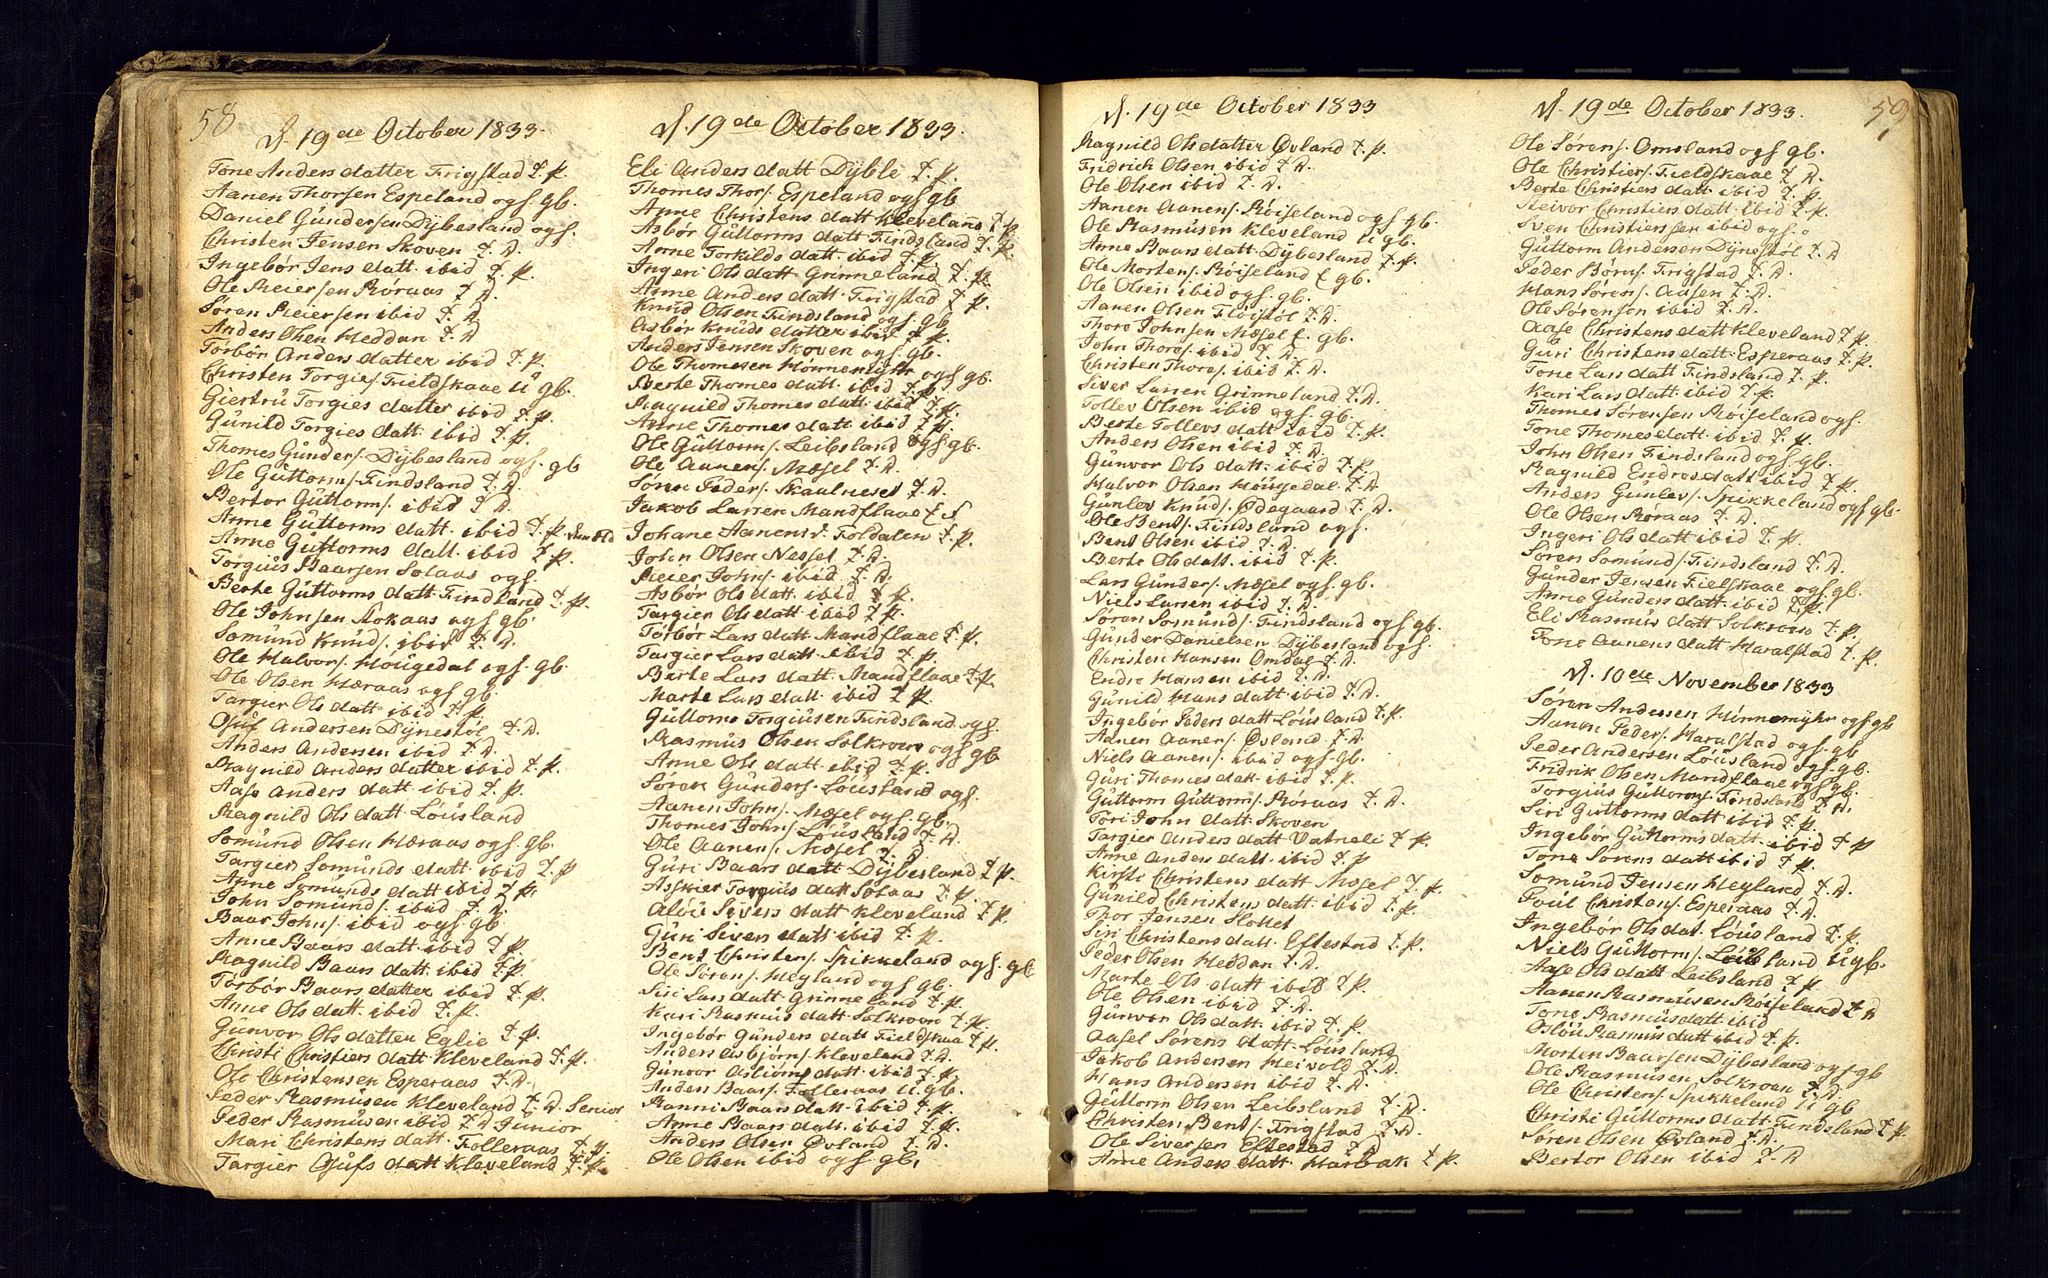 58
d. 19de October 1833.
Tone Andersdatter Frigstad T. P.
Aanen Thorsen Espeland ogf. gb.
Daniel Gündersen Dÿbesland ogf.
Christen Jensen Skoven T. D.
Ingebør Jens datt. ibid T. P.
Ole Reiersen Røraas T. D.
Søren Reiersen ibid T. D.
Anders Olsen Heddan T. D
Tørbør Anders datter ibid T. P.
Christen Torgies/. Fieldskaae ü gb.
Giertrü Torgies datter ibid T. P.
Günild Torgies datt. ibid T. P.
Thomes Günders/. Dÿbesland ogf. gb
Ole Güttorms/. Findsland T. D.
Bertor Güttorms/. ibid T. D.
Anne Güttorms datt. ibid T. P.
Anne Güttorms datt. ibid T. P.
Torgiüs Baarsen Solaas ogf.
Berte Güttorms datt. Findsland T. P.
Ole Johnsen Mokaas ogf gb.
Somund Knüds/. ibid T. D.
Ole Halvors/. Höügedal ogf. gb.
Ole Olsen Hæraas ogf gb.
Targier Ols datt ibid T. P.
Osüf Andersen Dÿnestøl T. D.
Anders Andersen ibid T. D.
Ragnild Anders datter ibid T. P.
Aase Anders datt ibid T. P.
Magnild Ols datt Løüsland
Somünd Olsen Hæraas ogf gb.
Targier Somünds datt ibid T. P
Anne Somünds datt ibid T. P.
John Somünds/. ibid T. D.
Baar Johns/. ibid ogf gb
Anne Baars datt ibid T. P.
Magnild Baars datt. ibid T. P.
Tørbør Baars datter ibid T. P.
Anne Ols datt. ibid T. P.
Günvor Ols datter Eglie T. P.
Christi Christiers datt Kleveland T. P.
Ole Christensen Esperaas T. D.
Peder Rasmüsen Kleveland T. D. Senior
Peder Rasmüsen ibid T. D Junior
Mari Christens datt. Folleraas T. P.
Targier Osüfs datt Kleveland T. P.
d. 19de October 1833.
Eli Anders datt Dÿblie T. P.
Thomes Thors/. Espeland ogf gb
Anne Christens datt Kleveland T. P.
Asbør Güttorms datt Findsland T. P.
Anne Torkilds datt ibid T. P.
Ingeri Ols datt Grinneland T. P.
Anne Anders datt Frigstad T. P.
Knüd Olsen Findsland ogf. gb
Asbør Knüds datter ibid T. P.
Anders Jensen Skoven ogf. gb.
Ole Thomesen Hønnemÿhr ogf gb.
Berte Thomes datt. ibid T. P.
Magnild Thomes datt. ibid T. P.
Anne Thomes datt ibid T. P.
Ole Güttorms/. Leibsland ogf gb.
Ole Aanens/. Mæsel T. D.
Søren Peders/. Skaalneset T. D.
Jakob Larsen Mandflaae
Johane Aanens d. Foldalen T. P.
John Olsen Nesset T. D.
Reier Johns/. ibid. T. D.
Asbør Ols datt ibid T. P.
Targier Ols datt ibid T. P.
Tørbør Lars datt Mandflaae T. P.
Targier Lars datt. ibid T. P.
Berte Lars datt. Mandflaae T. P.
Marte Lars datt ibid T. P.
Güttorm Torgiüsen Findsland ogf.
Rasmüs Olsen Solkroen ogf gb
Anne Ols datt ibid T. P.
Søren Günders/. Løüsland ogf.
Aanen Johns/. Mæsel ogf. gb.
Thomes Johns/. Løüsland T. D.
Ole Aanens/. Mæsel T. D
Güri Baars datt Dÿbesland T. P.
Asskier Torgiüs datt Solaas T. P.
Aløü Sivers datt Kleveland T. P.
Güri Sivers datt ibid T. P.
Bent Christens/. Spikkeland ogf. gb
Ole Sørens/. Heyland ogf gb.
Siri Lars datt Grinneland T. P.
Kari Rasmüs datt Solkroen T. P.
Ingebør Günders datt Fieldskaa T. P.
Anders Asbjørns/. Kleveland T. D.
Günvor Asbiørns datt ibid T. P.
Anders Baars/. Folleraas ü. gb.
Ranni Baars datt. ibid T. P.
Anne Baars datt. ibid T. P.
Anders Olsen Øvland T. D.
Ole Olsen ibid ogf. gb.
d. 19de October 1833
Magnild Ols datter Øvland T. P.
Fridrich Olsen ibid T. D.
Ole Olsen ibid T. D.
Aanen Aanens/. Røiseland ogf gb.
Ole Rasmüsen Kleveland ü gb.
Anne Baars datt. Dÿbesland T. P.
Ole Mortens/. Røiseland gb.
Ole Olsen ibid ogf. gb.
Aanen Olsen Fløistøl T. D.
Thore Johnsen Mæsel gb.
John Thores/. ibid T. D.
Christen Thores/. ibid T. D.
Siver Larsen Grinneland T. D.
Tollev Olsen ibid ogf. gb.
Berte Tollevs datt ibid T. P.
Anders Olsen ibid T. D.
Günvor Ols datt. ibid T. P.
Halvor Olsen Höügedal T. D
Günlev Knüds/. Ødegaard T. D.
Ole Bents/. Findsland ogf.
Bent Olsen ibid T. D.
Berte Ols datt. ibid T. P.
Lars Günders/. Mæsel ogf. gb.
Niels Larsen ibid T. D.
Søren Somünds/. Findsland ogf gb.
Günder Danielsen Dÿbesland ogf.
Christen Hansen Omdal T. D.
Endre Hansen ibid T. D.
Günild Hans datt ibid T. D.
Ingebør Peders datt Løüsland T. P.
Aanen Aanens/. Øvland T. D.
Niels Aanens/. ibid ogf. gb.
Güri Thomes datt ibid T. P.
Güttorm Güttorms/. Røraas T. D.
Tøri John datt Skoven
Targier Anders datt Vatneli T. P.
Anne Anders datt. ibid T. P
Kirsti Christens datt Mæsel T. P.
Günild Christens datt. ibid T. P.
Thor Jensen Slottet
Siri Christens datt. Eftestad T. P.
Peder Olsen Heddan T. D.
Marte Ols datt ibid T. P.
Ole Olsen ibid T. D.
Günvor Ols datt. ibid T. P.
Aasel Sørens datt Løüsland
Jakob Andersen Heivold T. D.
Hans Andersen ibid T. D.
Güttorm Olsen Leibsland T. D.
Christen Bents/. Frigstad T. D.
Ole Siversen Eftestad T. D.
Anne Anders datt. Harbak T. P.
59
d. 19de October 1833.
Ole Sørens/. Omsland ogf gb.
Ole Christiers/. Fieldskaae T. D
Berte Christiers datt ibid T. P.
Reivor Christiers datt ibid T. P.
Sven Christiersen ibid ogf.
Güttorm Andersen Dÿnestøl T. D
Peder Børns/. Frigstad T. D.
Hans Sørens/. Aasen T. D.
Ole Sørensen ibid T. D.
Aase Christens datt Kleveland T. P.
Güri Christens datt Esperaas T. P.
Tone Lars datt Findsland T. P.
Kari Lars datt ibid T. P.
Thomes Sørensen Røiseland ogf.
Tone Thomes datt. ibid T. P.
John Olsen Findsland ogf. gb.
Ragnild Endres datt ibid T. P.
Anders Gunlevs/. Spikkeland ogf gb.
Ole Olsen Røraas T. D.
Ingeri Ols datt ibid T. P.
Søren Somünds/. Findsland T. D.
Günder Jensen Fielskaae ogf. gb.
Anne Günders datt ibid T. P.
Eli Rasmüs datt Solkroen T. P.
Tone Aanens datt Haralstad T. P.
d. 10de November 1833
Søren Andersen Hønnemÿhr ogf gb
Aanen Peders/. Haralstad ogf. gb
Peder Andersen Løüsland ogf. gb.
Fridrik Olsen Mandflaae ogf gb.
Torgiüs Güttorms/. Findsland T. D.
Siri Güttorms datt ibid T. P.
Ingebør Güttorms datt. ibid T. P
Tone Sørens datt ibid T. P.
Somünd Jensen Heyland T. D.
Poül Christens/. Esperaas T. D.
Ingebør Ols dat. Løüsland T. P.
Niels Güttorms/. Leibsland ü gb.
Aase Ols datt Leibsland T. P
Aanen Rasmüsen Røiseland T. D
Tone Rasmüs datt ibid
Osløü Rasmüs datt ibid T. P.
Morten Baarsen Dÿbesland ogf gb
Ole Rasmüsen Solkroen T. D.
Ole Christens/. Spikkeland ü gb
Christi Güttorms datt. Findsland T. P.
Søren Olsen Øvland T. D.
Bertor Olsen ibid T. D